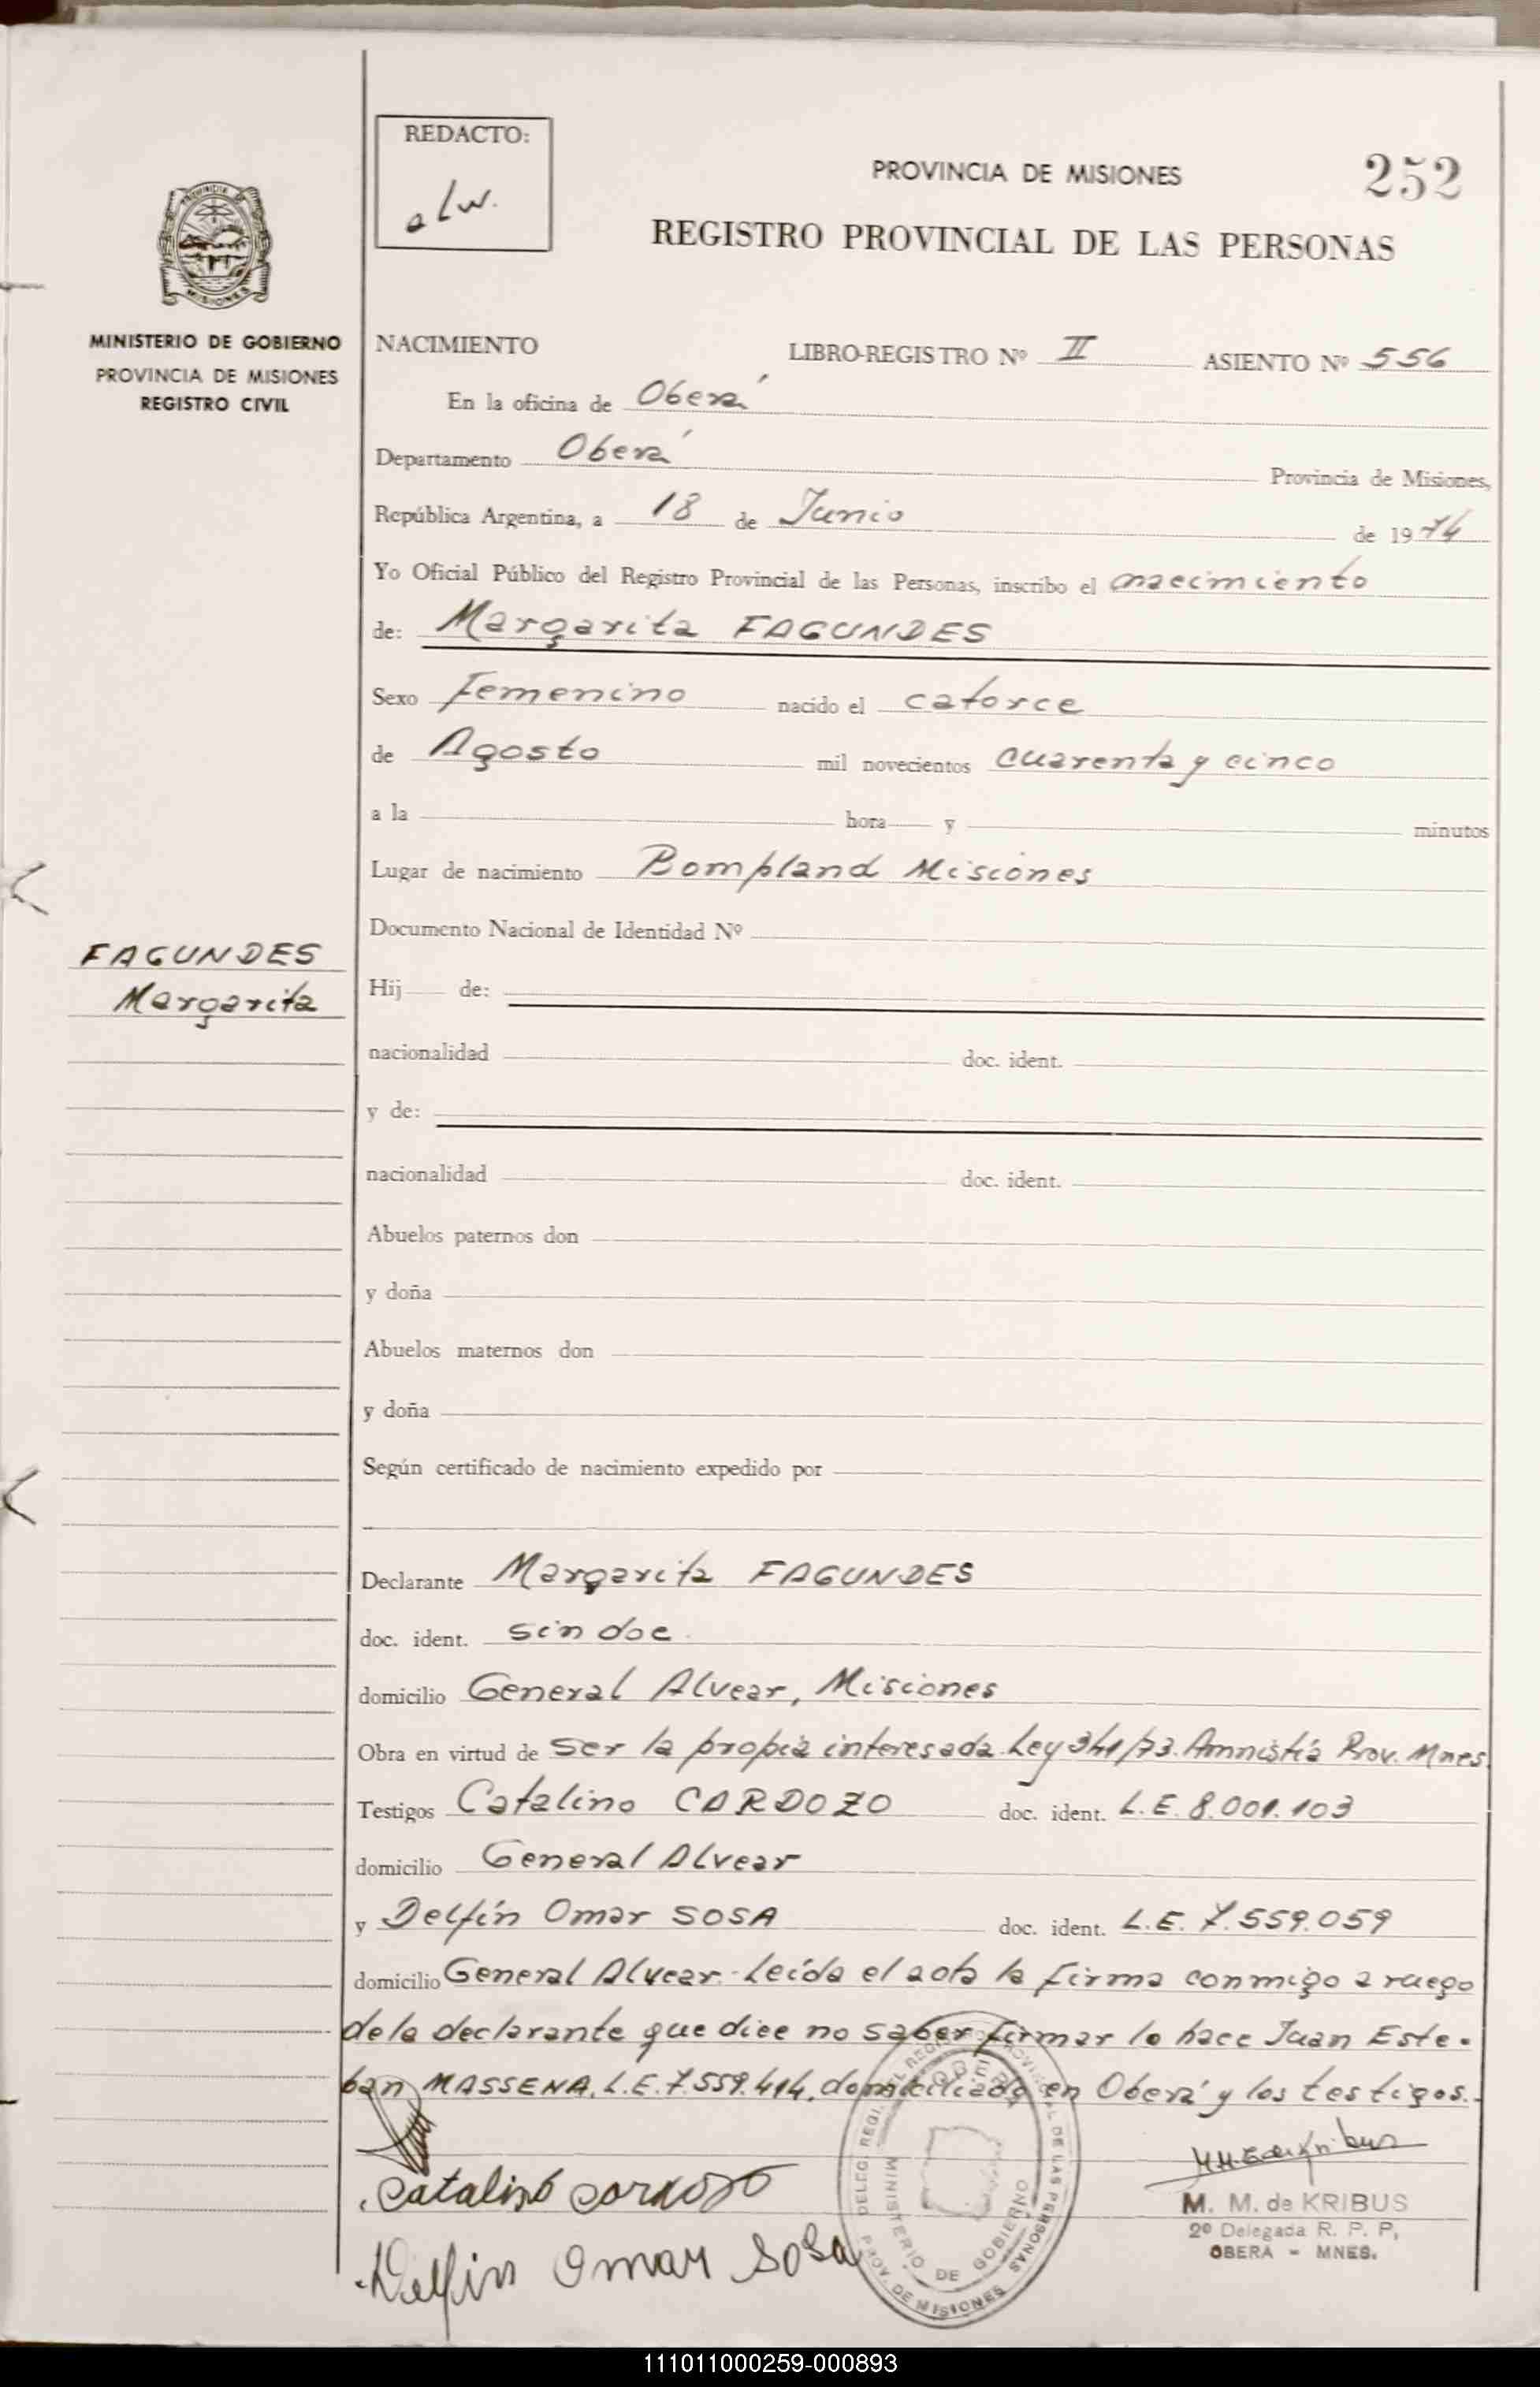 REDACTO:
alw.
PROVINCIA DE MISIONES
252
REGISTRO PROVINCIAL DE LAS PERSONAS
MINISTERIO DE GOBIERNO
PROVINCIA DE MISIONES
REGISTRO CIVIL
NACIMIENTO LIBRO-REGISTRO Nº II ASIENTO Nº 556
En la oficina de Oberá
Departamento Oberá Provincia de Misiones,
República Argentina, a 18 de Junio de 1974
Yo Oficial Público del Registro Provincial de las Personas, inscribo el nacimiento
de: Margarita FAGUNDES
Sexo Femenino nacido el catorce
de Agosto mil novecientos cuarenta y cinco
a la hora y minutos
Lugar de nacimiento Bompland Misiones
Documento Nacional de Identidad Nº
FAGUNDES
Margarita
Hij de:
nacionalidad doc. ident.
y de:
nacionalidad doc. ident.
Abuelos paternos don
y doña
Abuelos maternos don
y doña
Según certificado de nacimiento expedido por
Declarante Margarita FAGUNDES
doc. ident. sin doc.
domicilio General Alvear, Misiones
Obra en virtud de ser la propia interesada. Ley 341/73. Amnistía Prov. Mnes
Testigos Catalino CARDOZO doc. ident. L.E. 8.001.103
domicilio General Alvear
y Delfín Omar SOSA doc. ident. L.E. 7.559.059
domicilio General Alvear.- Leída el acta la firma conmigo a ruego
de la declarante que dice no saber firmar lo hace Juan Este-
ban MASSENA, L.E. 7.559.414, domiciliado en Oberá y los testigos.-
Catalino Cardozo
Delfin Omar Sosa
DELEG. REGI. DEL REGISTRO PROVINCIAL DE LAS PERSONAS
OBERA
MINISTERIO DE GOBIERNO
PROV. DE MISIONES
M. M. de KRIBUS
2º Delegada R. P. P,
OBERA - MNES.
111011000259-000893